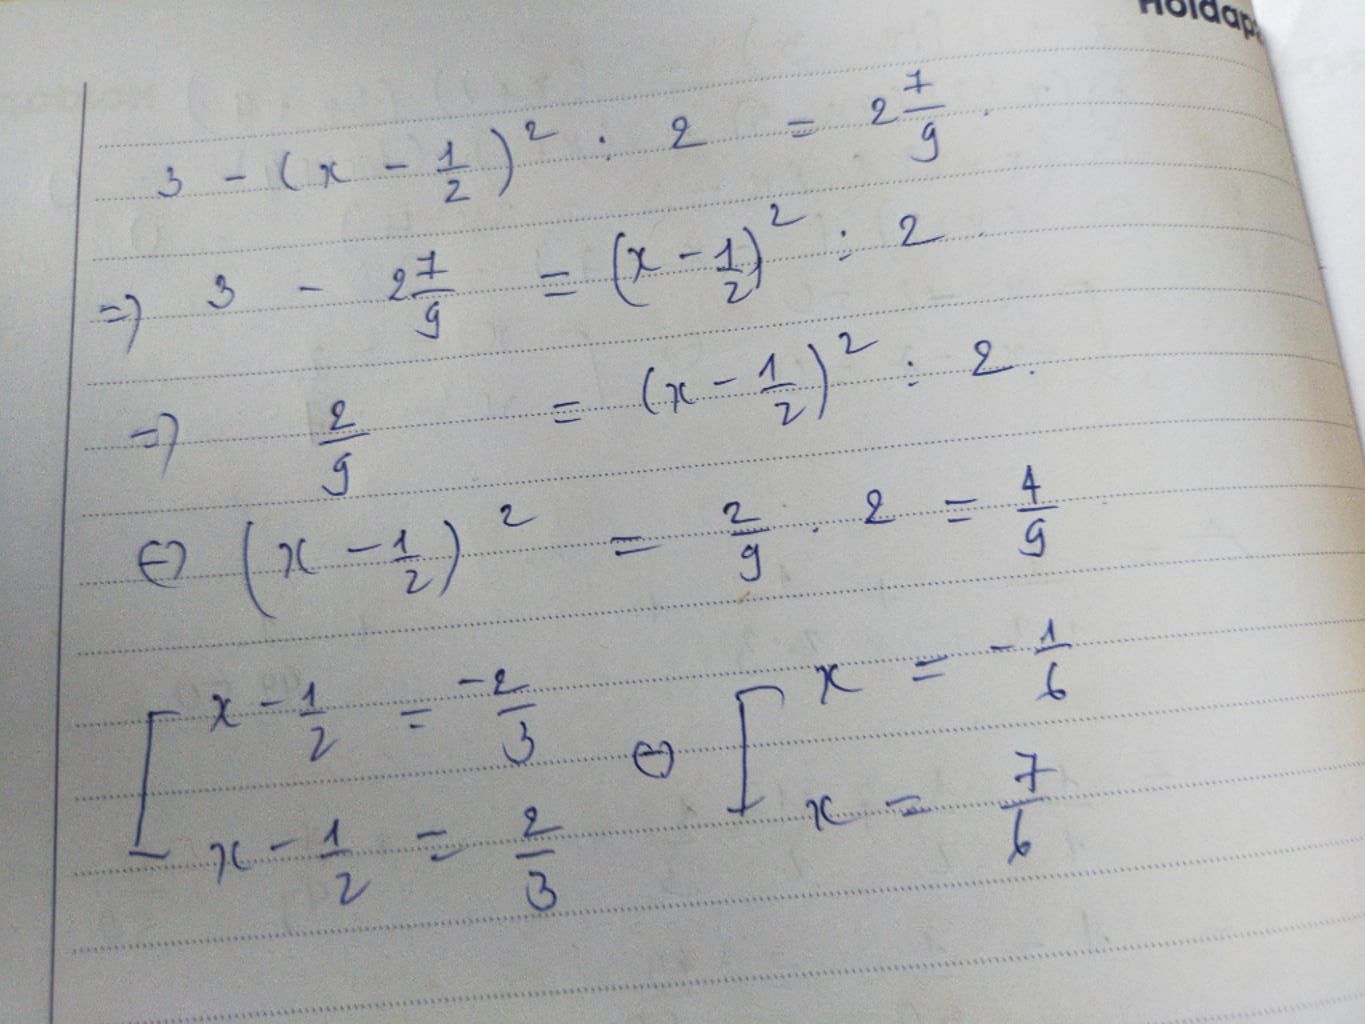 Holdap
3 - (x - 1/2)² : 2 = 2 7/9 .
=> 3 - 2 7/9 = (x - 1/2)² : 2 .
=> 2/9 = (x - 1/2)² : 2 .
⇔ (x - 1/2)² = 2/9 . 2 = 4/9
[ x - 1/2 = -2/3 ⇔ [ x = - 1/6
x - 1/2 = 2/3 x = 7/6